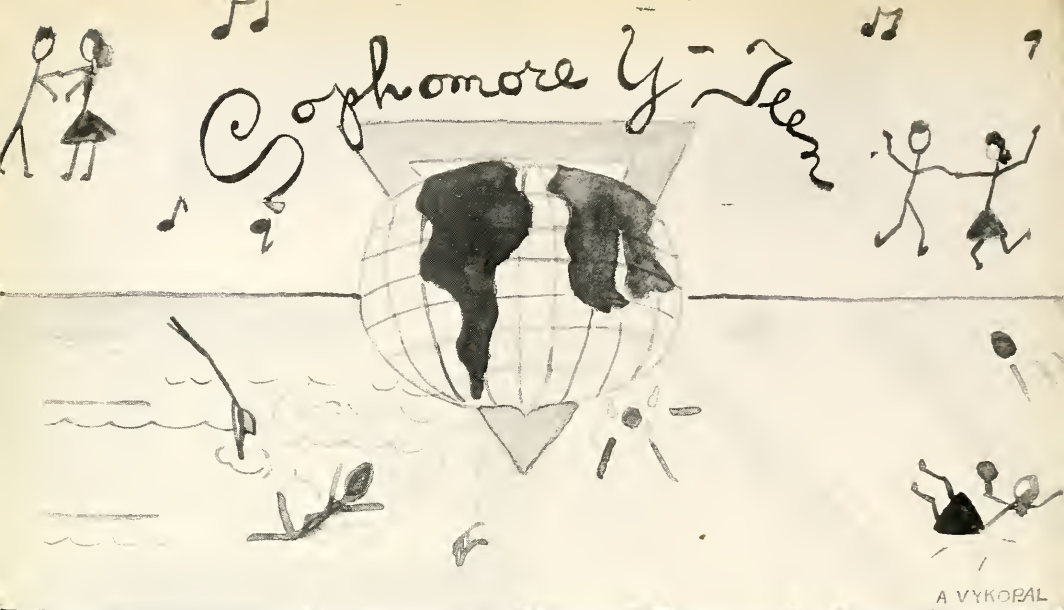 Sophomore Y-Teen
A VYKOPAL